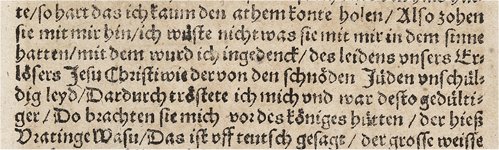 te/so hart das ich kaum den athem konte holen/Also zohen
sie mit mir hin/ich wuste nicht was sie mit mir in dem sinne
hatten/mit dem wurd ich ingedenck/des leidens vnsers Er-
lösers Jesu Christi wie der von den schnöden Jüden vnschül-
dig leyd/Dardurch tröstete ich mich vnd war desto gedülti-
ger/Do brachten sie mich vor des königes hütten/der hieß
Vratinge Wasu/Das ist vff teutsch gesagt/der grosse weisse